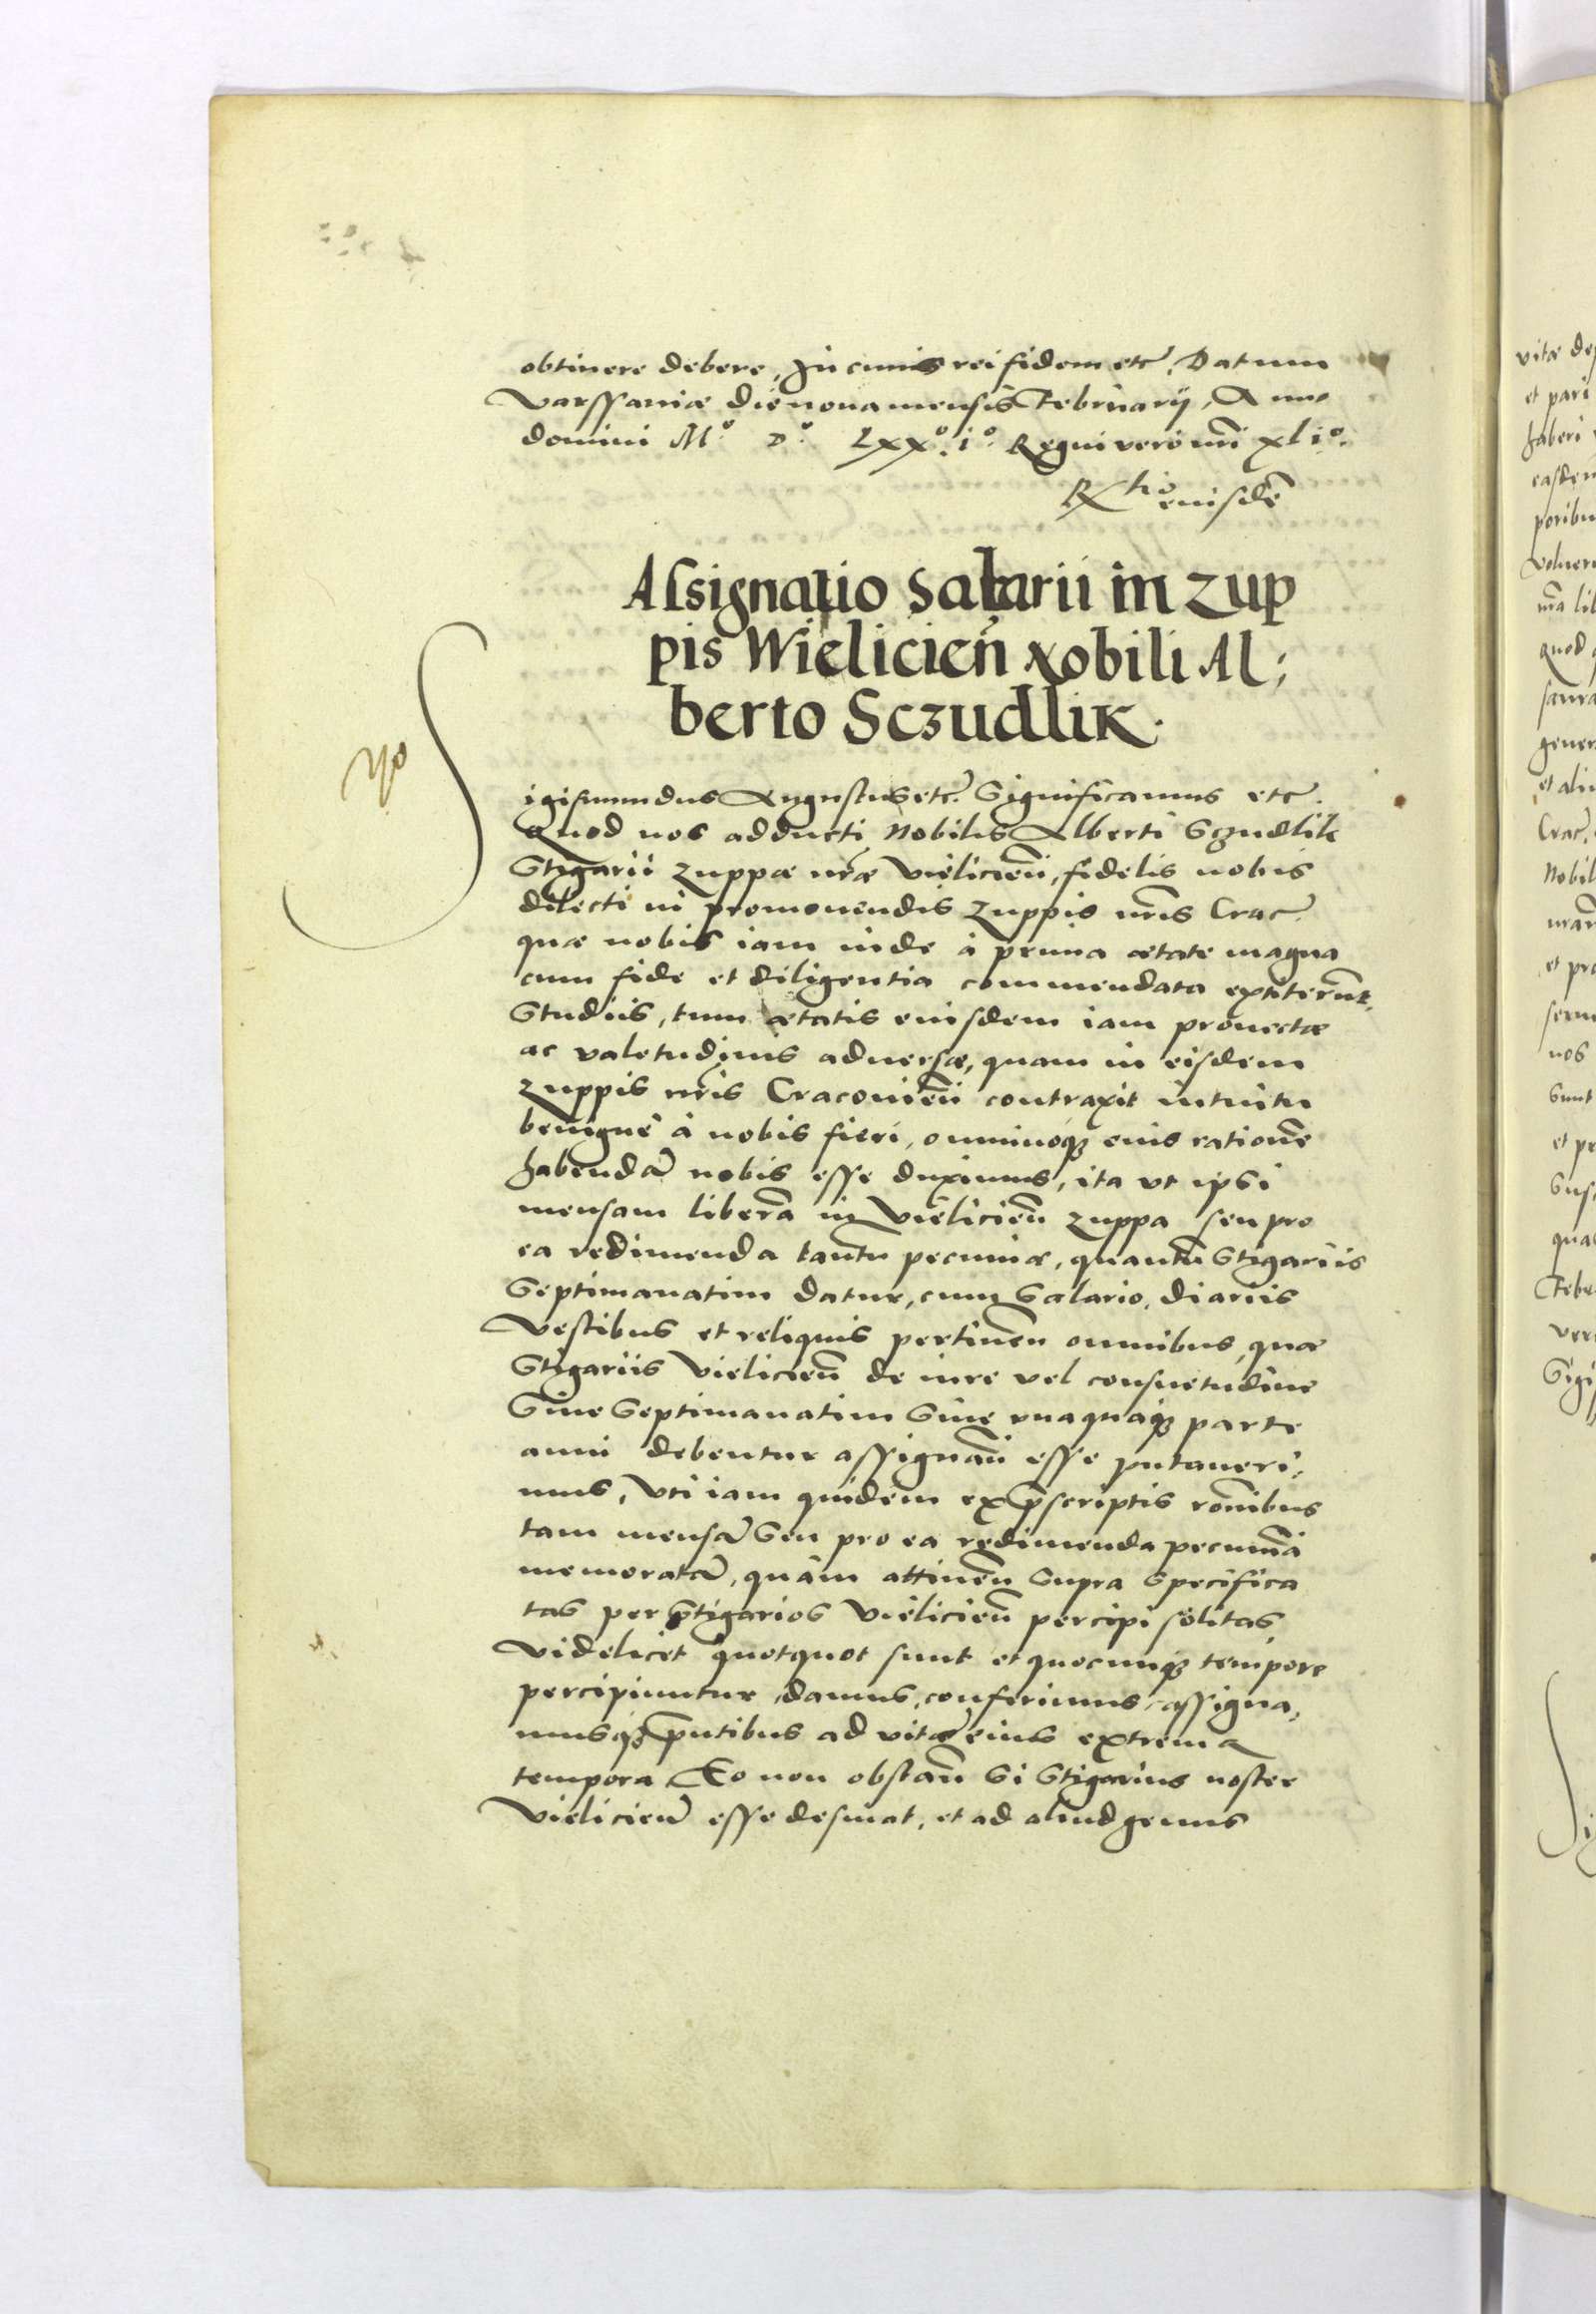 obtinere debere, In cuius rei fidem etc̃. Datum
Varssaviæ die nona mensis Februarij, Anno
domini M.º D.º Lxxº.iº. Regni vero nr̃i xliº.
Rtio eiusdẽ
Assignatio Salarii in Zup
pis Wielicień Nobili Al,
berto Sczudlik.
Sigismundus Augustus etc̃. Significamus etc̃.
Quod nos adducti Nobilis Alberti Sczudlik
Stigarii Zuppæ nr̃æ Vielicieñ, fidelis nobis
dilecti in promovendis Zuppis nr̃is Crac̃.
quæ nobis iam inde à prima ætate magna
cum fide et diligentia commendata extiterũt.
Studiis, tum ætatis eiusdem iam provectæ
ac valetudinis adversæ, quam in eisdem
Zuppis nr̃is Cracovieñ contraxit intuitu
benignè à nobis fieri, omninoqȝ eius rationẽ
habendã nobis esse duximus, ita ut ipsi
mensam liberã in Vielicieñ Zuppa seu pro
ea redimenda tantũ pecuniæ, quantũ Stigariis
Septimanatim datur, cum Salario, diariis
Vestibus et reliquis pertineñ omnibus, quæ
Stigariis Vielicieñ de iure vel consuetudine
Sive Septimanatim Sive unaquaqȝ parte
anni debentur assignañ esse putaveri,
mus, Uti iam quidem ex p̃scriptis rõnibus
tam mensã Seu pro ea redimenda pecuniã
memoratã, quàm attineñ Supra Specifica
tas per Stigarios Vielicieñ percipi solitas
Videlicet quotquot sunt et quocunqȝ tempore
percipiuntur, damus, conferimus, assigna,
musqȝ p̃ntibus ad vitæ eius extrema
tempora, Eo non obstañ Si Stigarius noster
Vielicieñ esse desinat, et ad aliud genus